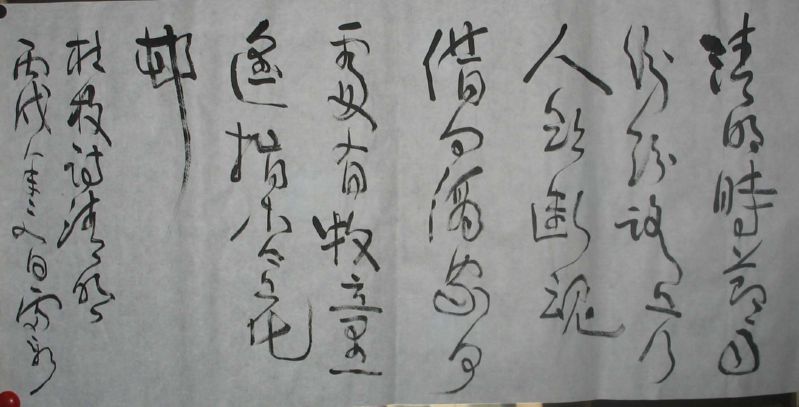 清明時節雨
紛紛路上行
人欲斷魂
借问酒家何
處有牧童
遥指杏花
邨
杜牧诗清明
丙戌年